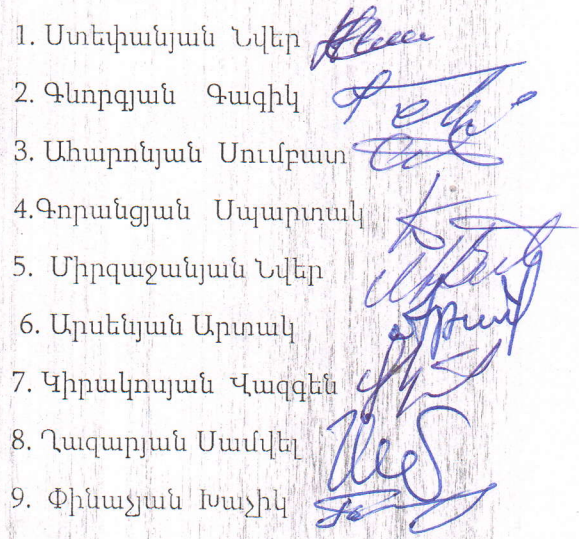 1. Ստեփանյան Նվեր
2. Գևորգյան Գագիկ
3. Ահարոնյան Սումբատ
4.Գորանցյան Սպարտակ
5. Միրզաջանյան Նվեր
6. Արսենյան Արտակ
7. Կիրակոսյան Վազգեն
8. Ղազարյան Սամվել
9. Փինաչյան Խաչիկ